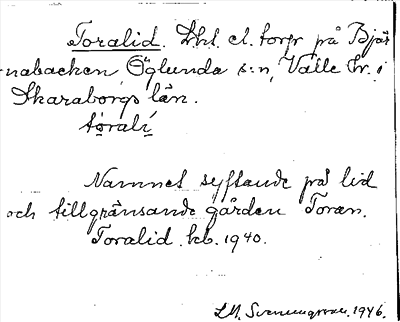 Toralid. Lht. el. torp på Bjär
nabacken, Öglunda s:n, Valle hr. i
Skaraborgs län.
torali
Namnet syftande på lid
och tillgränsande gården Toran.
Toralid. kb. 1940.
1946.